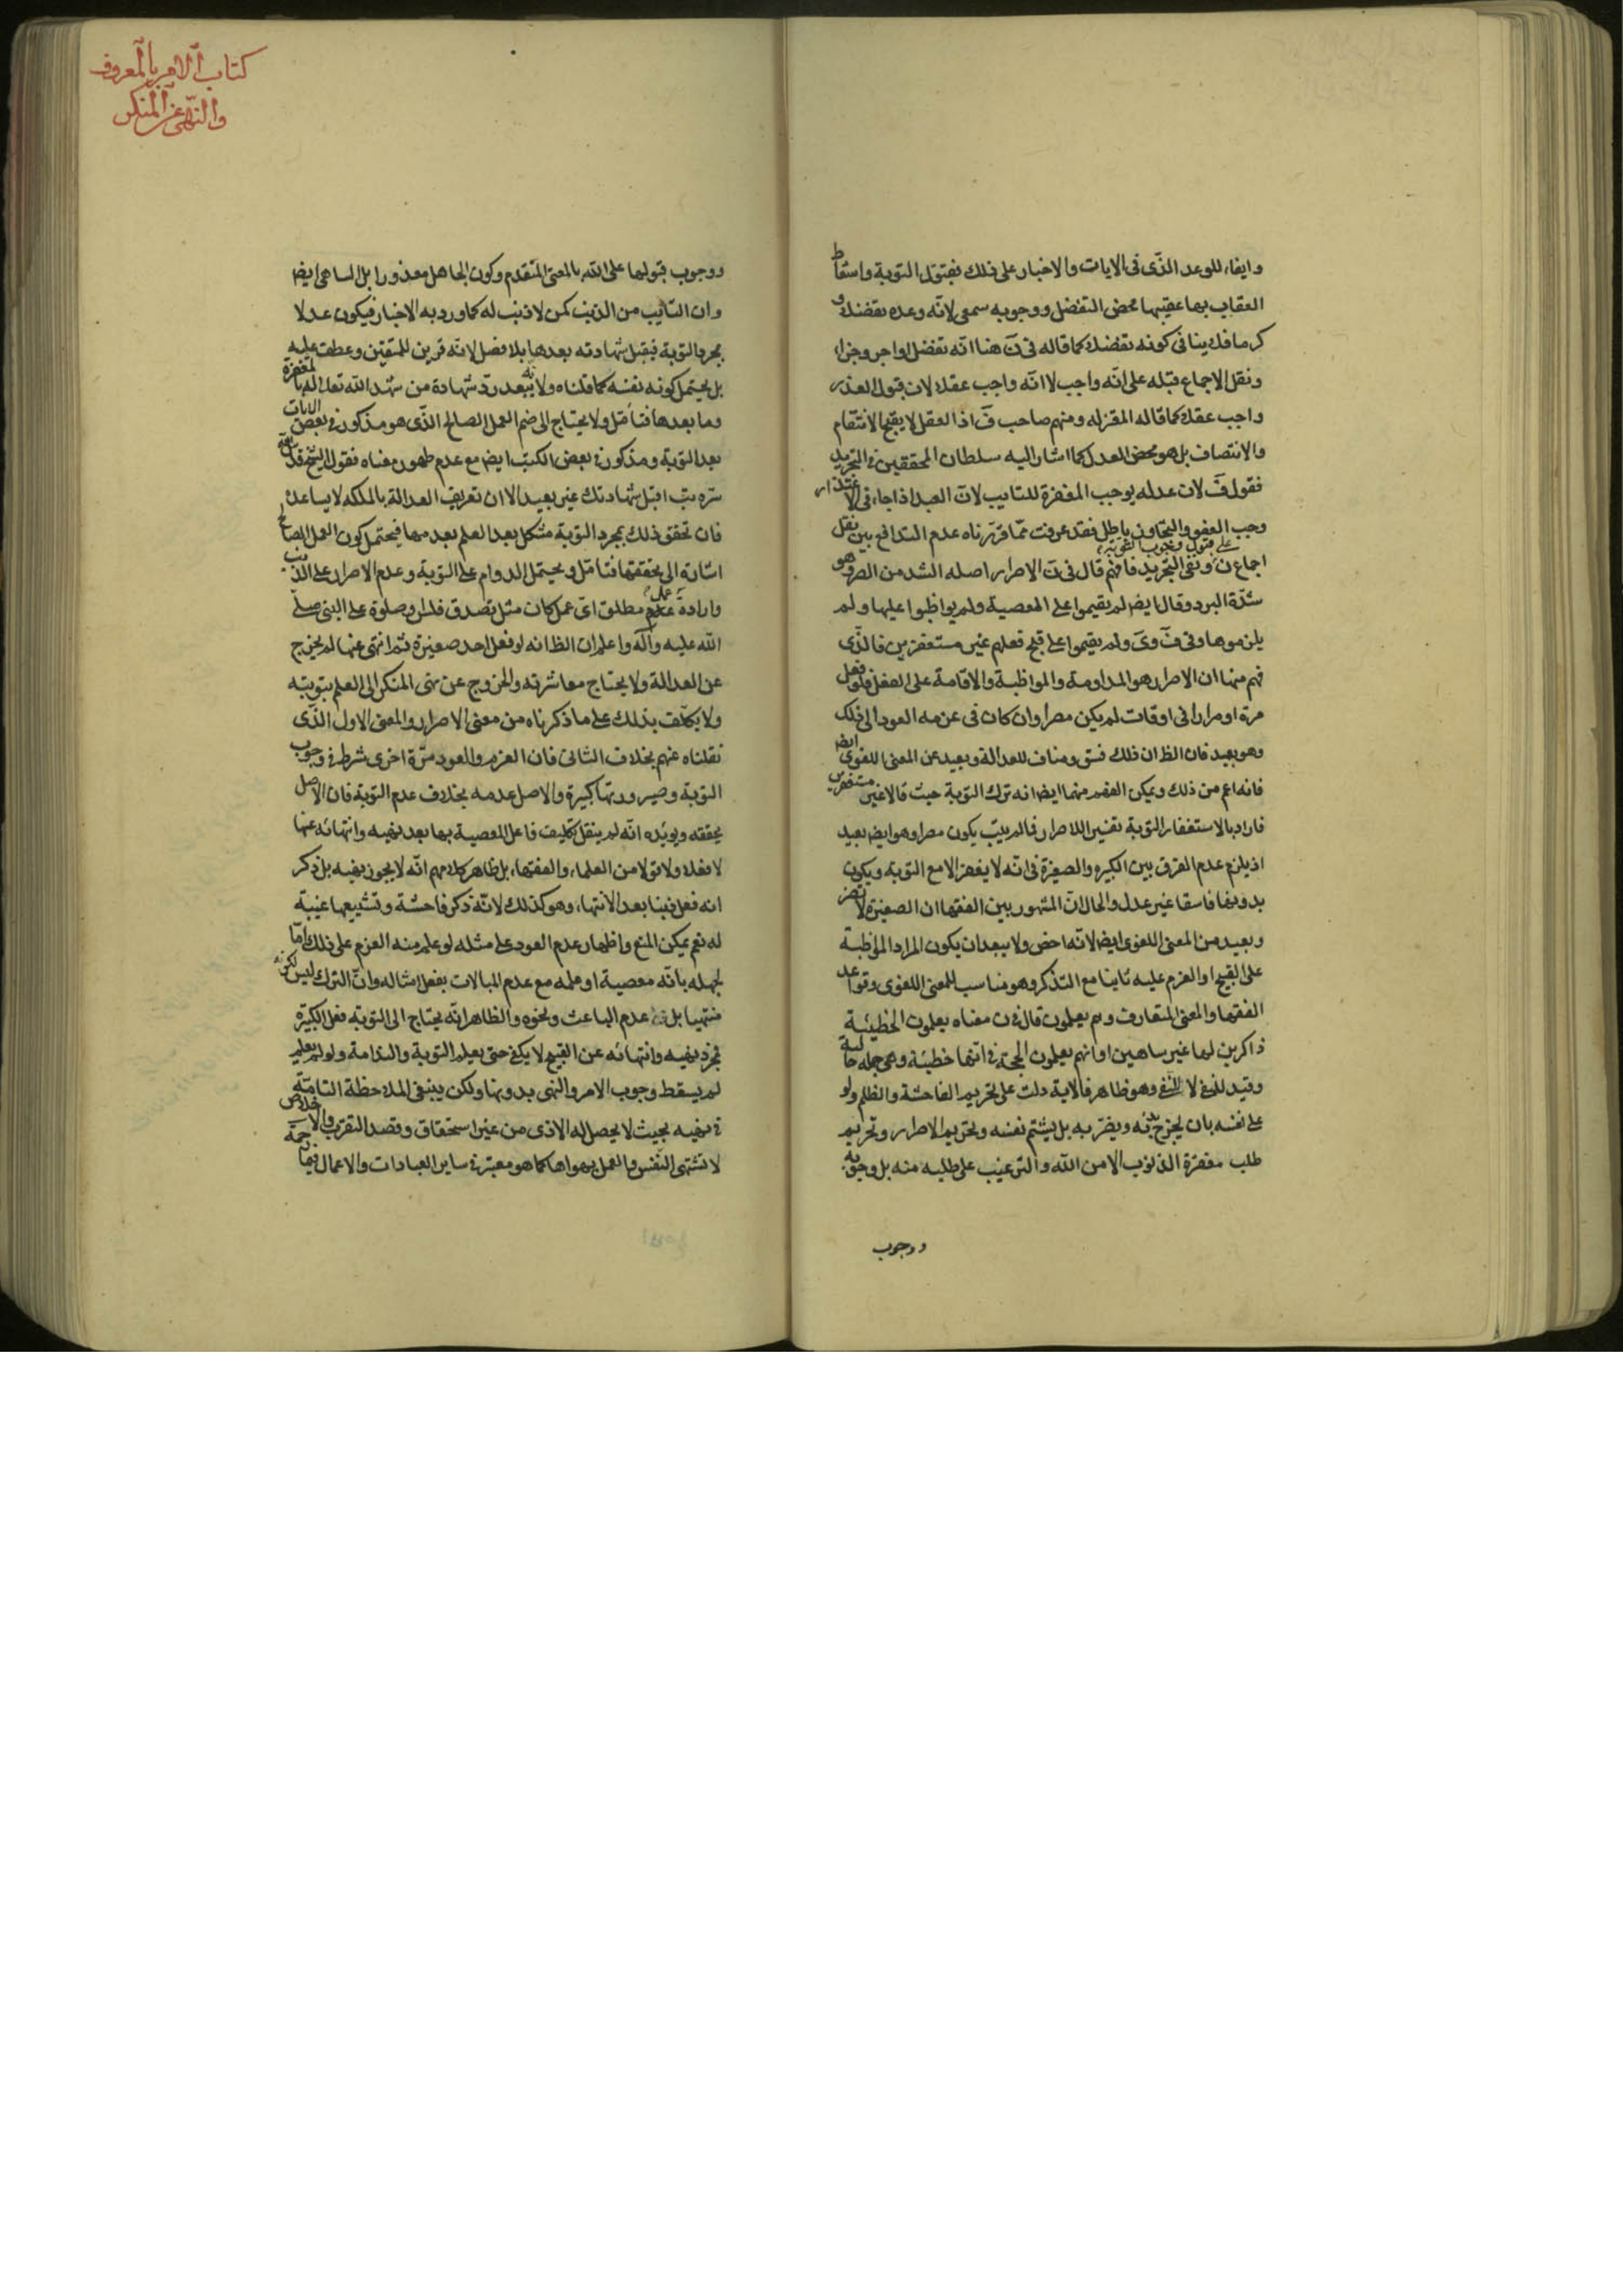 وايفاء للوعد الذّى فى الايات والاخبار على ذلك فبقبول التوبة واسقاط
العقاب بها عقيبها محض التفضل ووجوبه سمعى لانّه وعده تفضلا و
كرما فلا ينافى كونه تفضلا كما قاله فى نَ هنا انّه تفضل لا اجر وجزاء
ونقل الاجماع قبله على انّه واجب لا انّه واجب عقلا لان قبول العذر
واجب عقلا كما قاله المعتزله ومنهم صاحب فَ اذا العقل لا يقبح الانتقام
والانتصاف بل هو محض العدل كما اشار اليه سلطان المحققين فى التجريد
فقول فَ لان عدله يوجب المغفرة للتايب لانّ العبد اذا جاء فى الاعتذار
وجب العفو والتجاوز باطل فقد عرفت ممّا قرّرناه عدم التدافع بين نقل
اجماع نَ على قبول وجوب التوبة ونفى التجريد فافهم قال فى نَ الاصرار اصله الشد من الصر وهو
شدّة البرد وقال ايض لم يقيموا على المعصية ولم يواظبوا عليها ولم
يلزموها وفى فَ وىَ ولم يقيموا على قبح فعلهم غير مستغفرين فالذّى
فهم منها ان الاصرار هو المداومة والمواظبة والاقامة على الفعل فلو فعل
مرة او مرارا فى اوقات لم يكن مصرا وان كان فى عزمه العود الى ذلك
وهو بعيد فان الظ ان ذلك فسق ومناف للعدالة وبعيد عن المعنى اللغوى ايض
فانه اعم من ذلك ويمكن الفهم منهما ايضا انه ترك التوبة حيث قالا غير مستغفرين
فاراد بالاستغفار التوبة تفسير اللاصرار فالم يتب يكون مصرا وهو ايض بعيد
اذ يلزم عدم الفرق بين الكبيره والصغيرة فى انّه لا يغفر الا مع التوبة ويكون
بدونها فاسقا غير عدل والحال انّ المشهور بين الفقها ان الصغيرة لا تضر
وبعيد من المعنى اللغوى ايضا لانّه اخص ولا يبعد ان يكون المراد المواظبة
على القبيح او العزم عليه ثانيا مع التذكر وهو مناسب للمعنى اللغوى وقواعد
الفقها والمعنى المتعارف وهم يعلمون قال فى ن معناه يعلمون الخطيئة
ذاكرين لها غير ساهين او انهم يعلمون الحجة فى انها خطيئة وهى جمله حالية
وقيد للنفى لا المنفى وهو ظاهر فالاية دلت على تحريم الفاحشة والظلم ولو
على نفسه بان يجرح بدنه ويضرّ به بل يشتم نفسه وتحريم الاصرار وتحريم
طلب مغفرة الذنوب الا من الله والترغيب على طلبه منه بل وجوبه
ووجوب
كتاب الامر بالمعروف
والنّهى عن المنكر
ووجوب قبولها على الله بالمعنى المتقدم وكون الجاهل معذورا بل الساهى ايض
وان التائب من الذنب كمن لا ذنب له كما ورد به الاخبار فيكون عدلا
بمجرد التوبة فيقبل شهادته بعدها بلا فصل لانّه قرين للمتقين وعطف عليه
بل يحتمل كونه نفسه كما قلناه ولانه يبعد ردّ شهادة من شهد الله تعالى له بالمغفرة
وما بعدها فتامّل ولا يحتاج الى ضم العمل الصالح الذّى هو مذكور فى بعض الايات
بعد التوبة ومذكور فى بعض الكتب ايض مع عدم ظهور معناه فقول الشيخ قدس الله
سرّه تب اقبل شهادتك غير بعيد الا ان تعريف العدالة بالملكه لا يساعده
فان تحقق ذلك بمجرد التوبة مشكل بعد العلم بعدمها فيحتمل كون العمل الصالح
اشارة الى تحققها فتامّل ويحتمل الدوام على التوبة وعدم الاصرار على الذنب
وارادة عمل مطلق اىّ عمل كان مثل تصدق فلس وصلوة على النبى صلّى
الله عليه وآله واعلم ان الظ انه لو فعل احد صغيرة ثم انتهى عنها لم يخرج
عن العدالة ولا يحتاج معاشرته والخروج عن نهى المنكر الى العلم بتوبته
ولا يكلّف بذلك على ما ذكرناه من معنى الاصرار والمعنى الاول الذّى
نقلناه عنهم بخلاف الثانى فان العزم والعود مرّة اخرى شرط فى وجوب
التوبة وصيرورتها كبيرة والاصل عدمه بخلاف عدم التوبة فان الاصل
يحققه ويويده انّه لم ينقل تكليف فاعل المعصية بها بعد نهيه وانتهائه عنها
لا فعلا ولا قولا من العلماء والفقهاء بل ظاهر كلامهم انّه لا يجوز نهيه بل ذكر
انه فعل ذنبا بعد الانتهاء وهو كذلك لانّه ذكر فاحشة وتشييعها غيبة
له نعم يمكن المنع واظهار عدم العود على مثله لو علم منه العزم على ذلك امّا
لجهله بانّه معصية او علمه مع عدم المبالات بفعل امثاله وانّ الترك ليس لكونه
منتهيا بل عدم الباعث ونحوه والظاهر انّه يحتاج الى التوبة فعل الكبيرة
فمجرد نهيه وانتهائه عن القبيح لا يكفى حتى يعلم التوبة والندامة ولو لم يعلم
لم يسقط وجوب الامر والنهى بدونها ولكن ينبغى الملاحظة التامّة
فى نهيه بحيث لا يحصل له الاذى من غير استحقاق وقصد التقرب والاخلاص
لا تشتهى النفس والعمل بهواها كما هو معتبر فى ساير العبادات والاعمال فيما